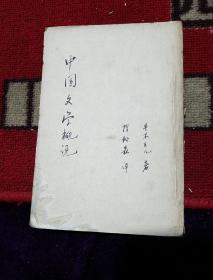 中国文学概说
青木正儿 著
隋树森 译